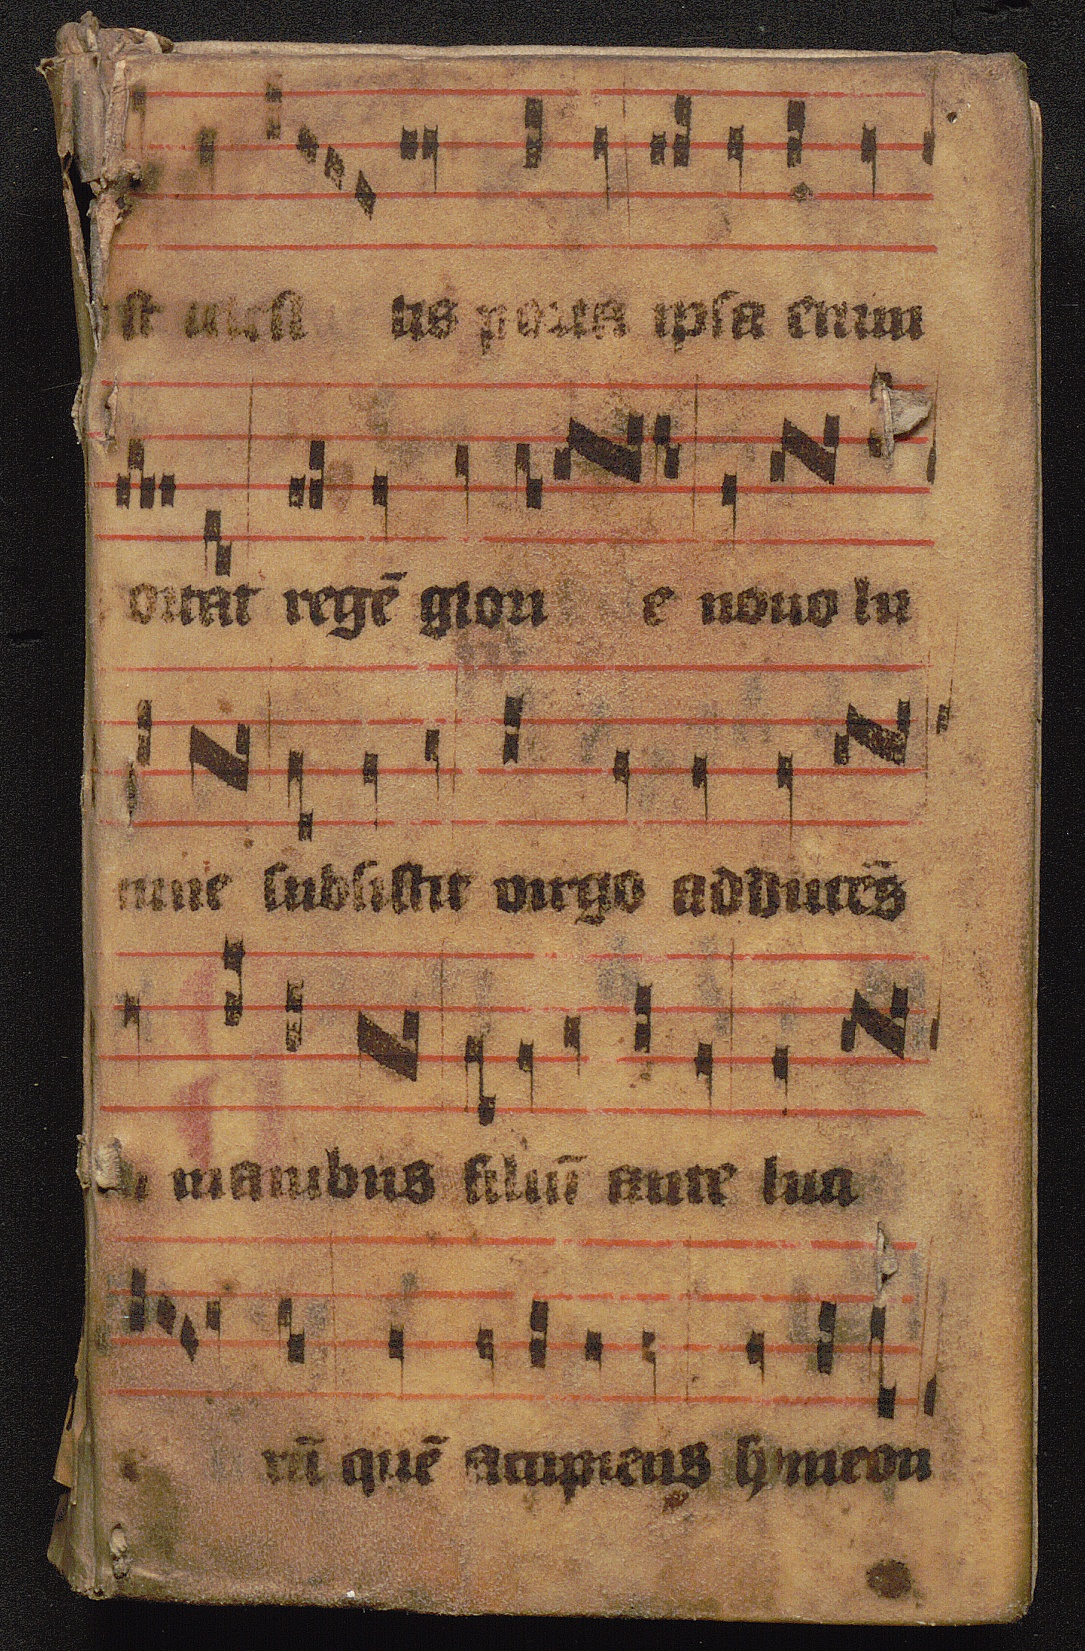 st celesti tis porta ipsa enim
ortat regē glori e noui lu
mine subsistit virgo adducēs
in manibus filiū ante luci
e rū quē accipiens symeon